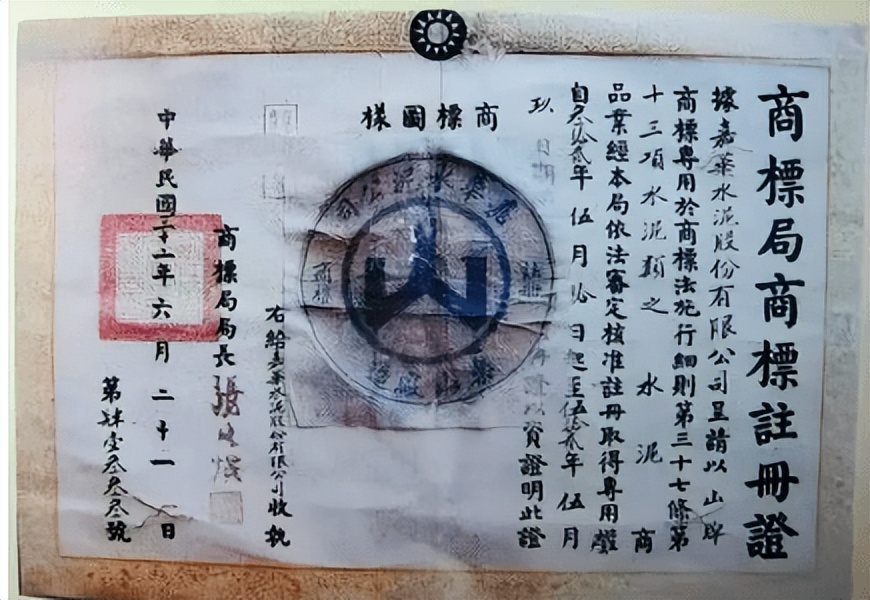 商標局商標註冊證
據嘉華水泥股份有限公司呈請以山牌
商標專用於商標法施行細則第三十七條第
十三項水泥類之水泥商
品業經本局依法審定核准註冊取得專用權
自叁拾貳年伍月拾日起至伍拾貳年伍月
玖日
資證明此證
商標圖樣
嘉華水泥公司
山
右給嘉華水泥股份有限公司收執
商標局局長張
中華民國三十二年六月二十一日
第肆壹叁叁叁號